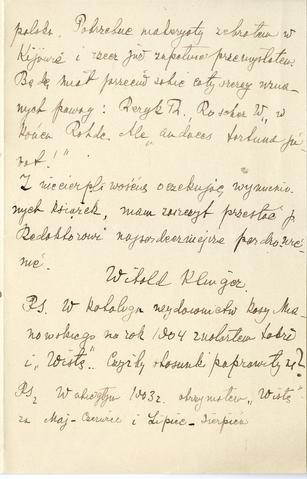 polsko. Potrzebne materyały zebrałem w
Kijowie i rzecz już zupełnie przemyślałem.
Będę miał przeciw sobie cały szereg uzna-
nych powag: Zeryk Th., Roscher W., w
końcu Rohde. Ale „audaces fortuna ju-
vat!"
Z niecierpliwością oczekując wymienio-
nych książek, mam zaszczyt przesłać p.
Redaktorowi najserdeczniejsze pozdrowie-
nie.
Witold Klinger.
Ps. W katalogu wydawnictw Kasy Mia-
nowskiego na rok 1904 znalazłem także
i „Wisłę". Czyżby stosunki poprawiły się?
Ps₂ W ubiegłym 1903 r. otrzymałem „Wisłę"
za Maj-Czerwiec i Lipiec-Sierpień